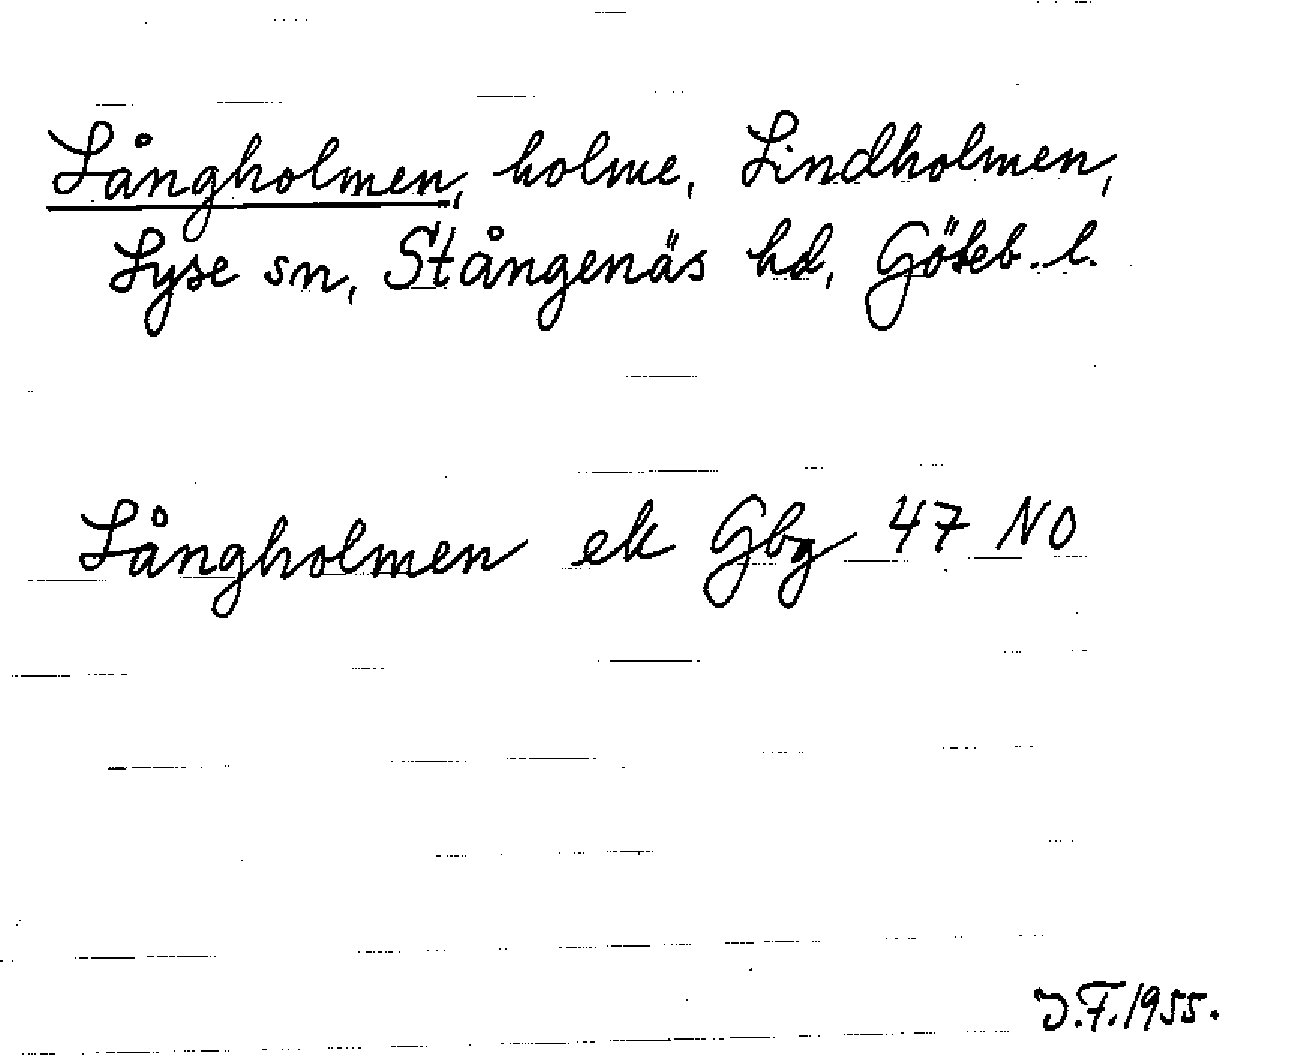 Långholmen, holme, Lindholmen,
Lyse sn, Stångenäs hd, Göteb. l.
Långholmen ek Gbg 47 NO
J.F. 1955.